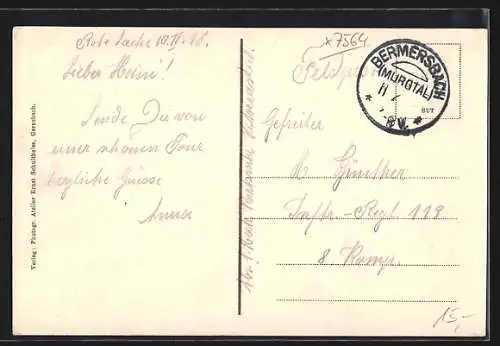 x7564
Rote Lache 10.IV.18.
Feldpost
BERMERSBACH
(MURGTAL)
11 4
Lieber Heini!
Sende Dir von
einer schönen Tour
herzliche Grüsse
Anna
Gefreiter
H Günther
Inftr.-Regt. 113
8 Komp.
Verlag: Photogr. Atelier Ernst Schultheiss, Gernsbach.
15,-